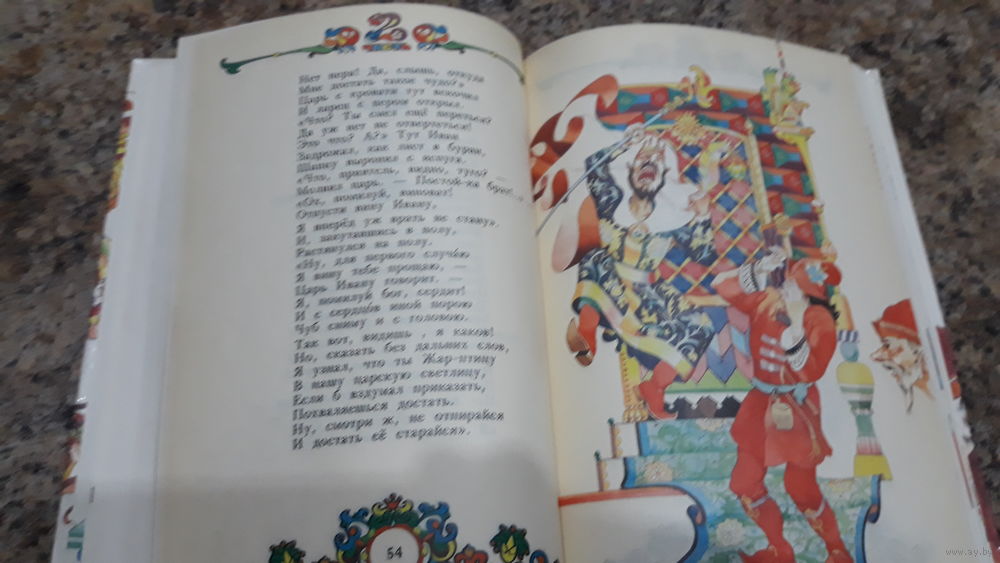 2
Нет пера! Да, слышь, откуда
Мне достать такое чудо?»
Царь с кровати тут вскочил
И ларец с пером открыл.
«Что? Ты смел ещё переться?
Да уж нет не отвертеться!
Это что? А?» Тут Иван
Задрожал, как лист в буран,
Шапку выронил с испуга.
«Что, приятель, видно, туго? —
Молвил царь. — Постой-ка брат!..»
«Ох, помилуй, виноват!
Отпусти вину Ивану,
Я вперёд уж врать не стану».
И, закутавшись в полу,
Растянулся на полу.
«Ну, для первого случаю
Я вину тебе прощаю, —
Царь Ивану говорит. —
Я, помилуй бог, сердит!
И с сердцов иной порою
Чуб сниму и с головою.
Так вот, видишь , я каков!
Но, сказать без дальних слов,
Я узнал, что ты Жар-птицу
В нашу царскую светлицу,
Если б вздумал приказать,
Похваляешься достать.
Ну, смотри ж, не отпирайся
И достать её старайся».
54
www.ay.by